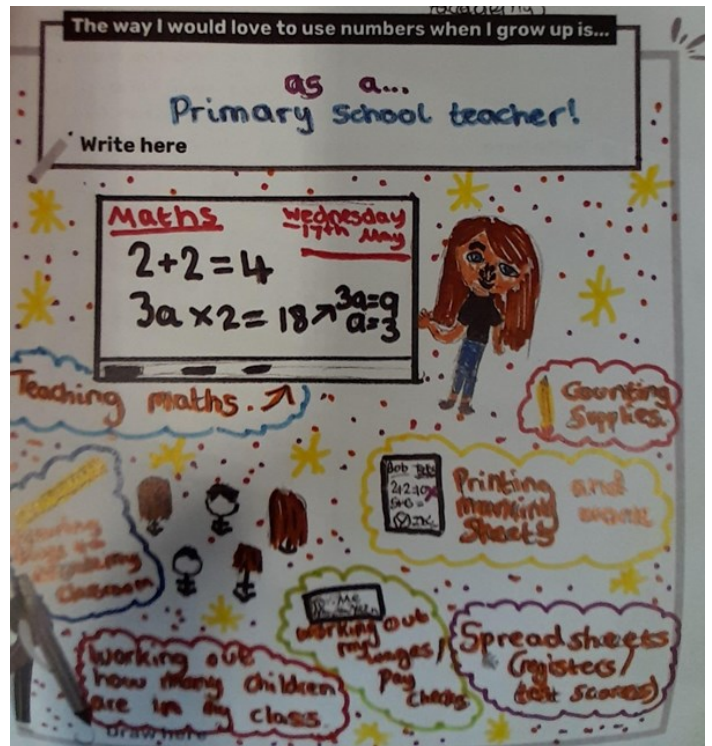 The way I would love to use numbers when I grow up is...
as a...
Primary school teacher!
Write here
Maths
Wednesday
17th May
2+2=4
3a×2=18↗3a=9
a=3
Teaching maths.↗
Counting
Supplies.
Printing and
marking work
Sheets
classroom
Me
working out
my wages/
pay
checks
Spreadsheets
(registers/
test scores)
working out
how many children
are in my class.
Draw here